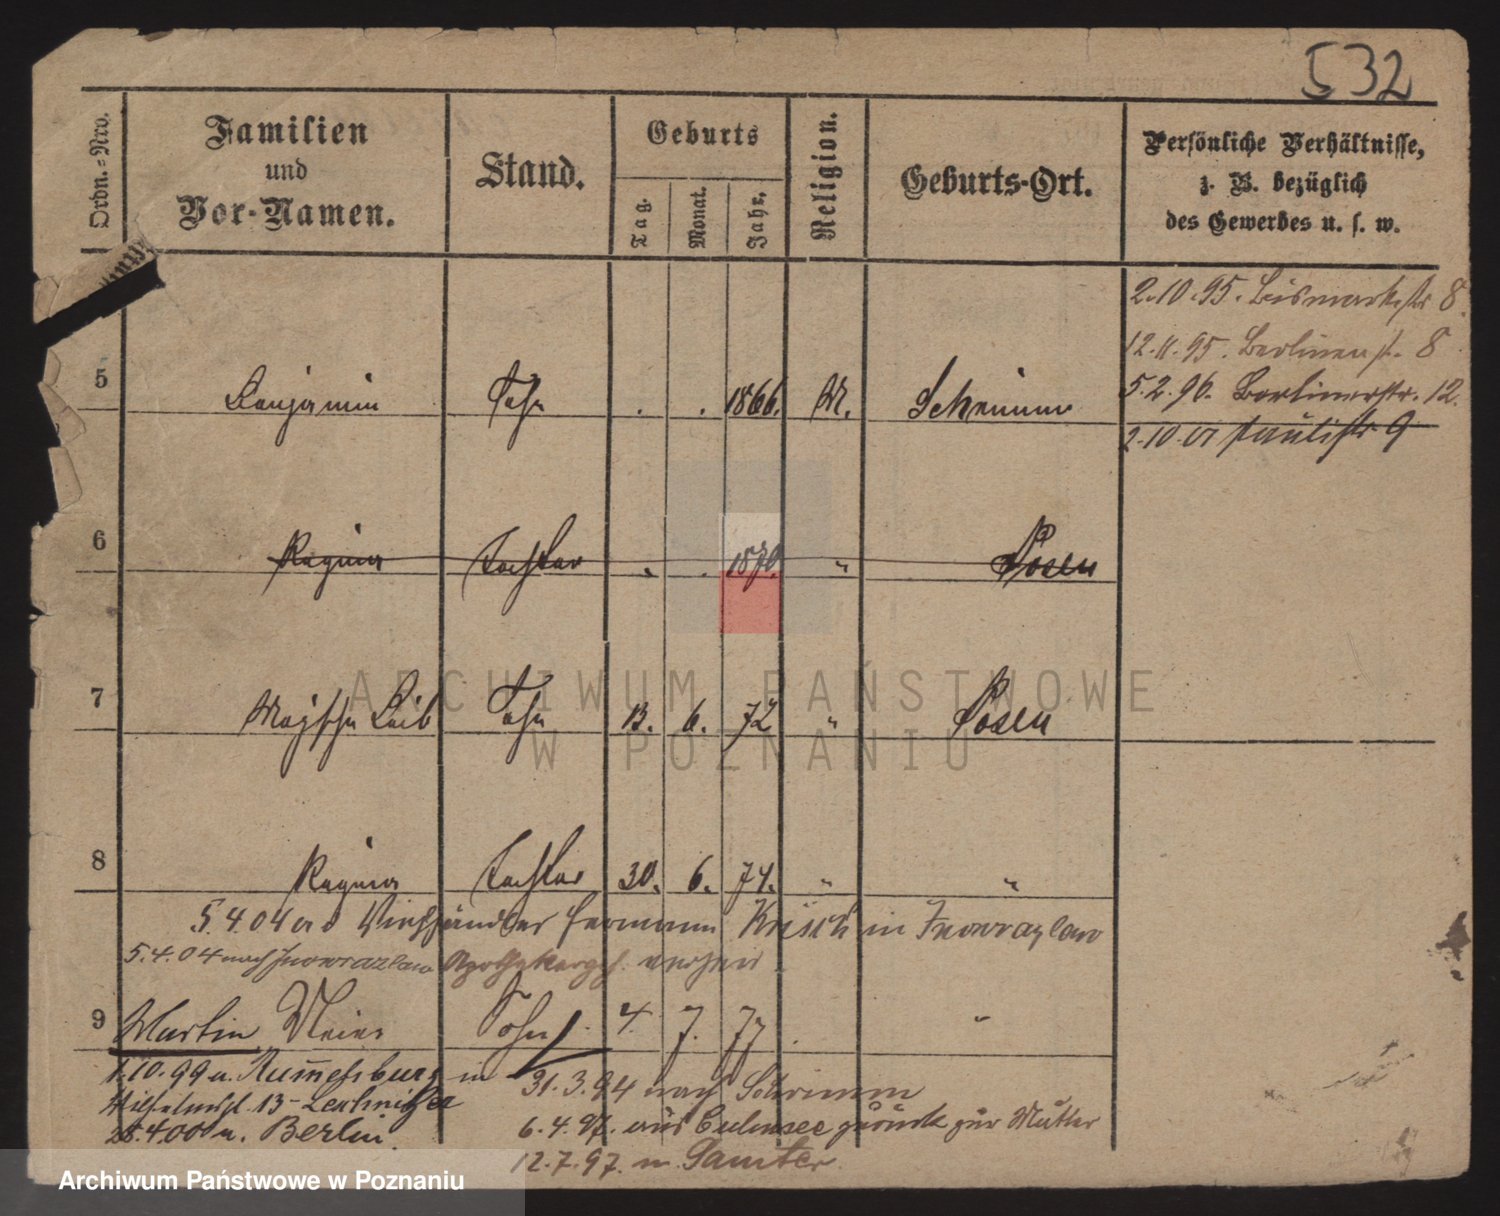 532
Ordn.=Nro.
Familien
und
Vor-Namen.
Stand.
Geburts
Tag.
Monat.
Jahr.
Religion.
Geburts-Ort.
Persönliche Verhältnisse,
z. B. bezüglich
des Gewerbes u. s. w.
2.10.95. Bismarkstr 8.
12.11.95. Berlinerst. 8
5.2.96. Berlinerstr. 12.
2.10.01 Paulistr 9
5 Benjamin Sohn . . 1866. M. Schrimm
6 Regina Tochter . . 1870. " Posen
7 Leib Sohn 13. 6. 72 " Posen
8 Regina Tochter 30. 6. 74. " "
5.4.04 Hermann in Inowrazlaw
5.4.04 nach Inowrazlaw
9 Martin Meier Sohn 4. 7. 77. "
1.10.99 n. Rummelsburg in
13
28.4.00 n. Berlin.
31.3.94 nach Schrimm
6.4.97. aus Culmsee zurück zur Mutter
12.7.97. n. Samter.
ARCHIWUM PAŃSTWOWE
W POZNANIU
Archiwum Państwowe w Poznaniu